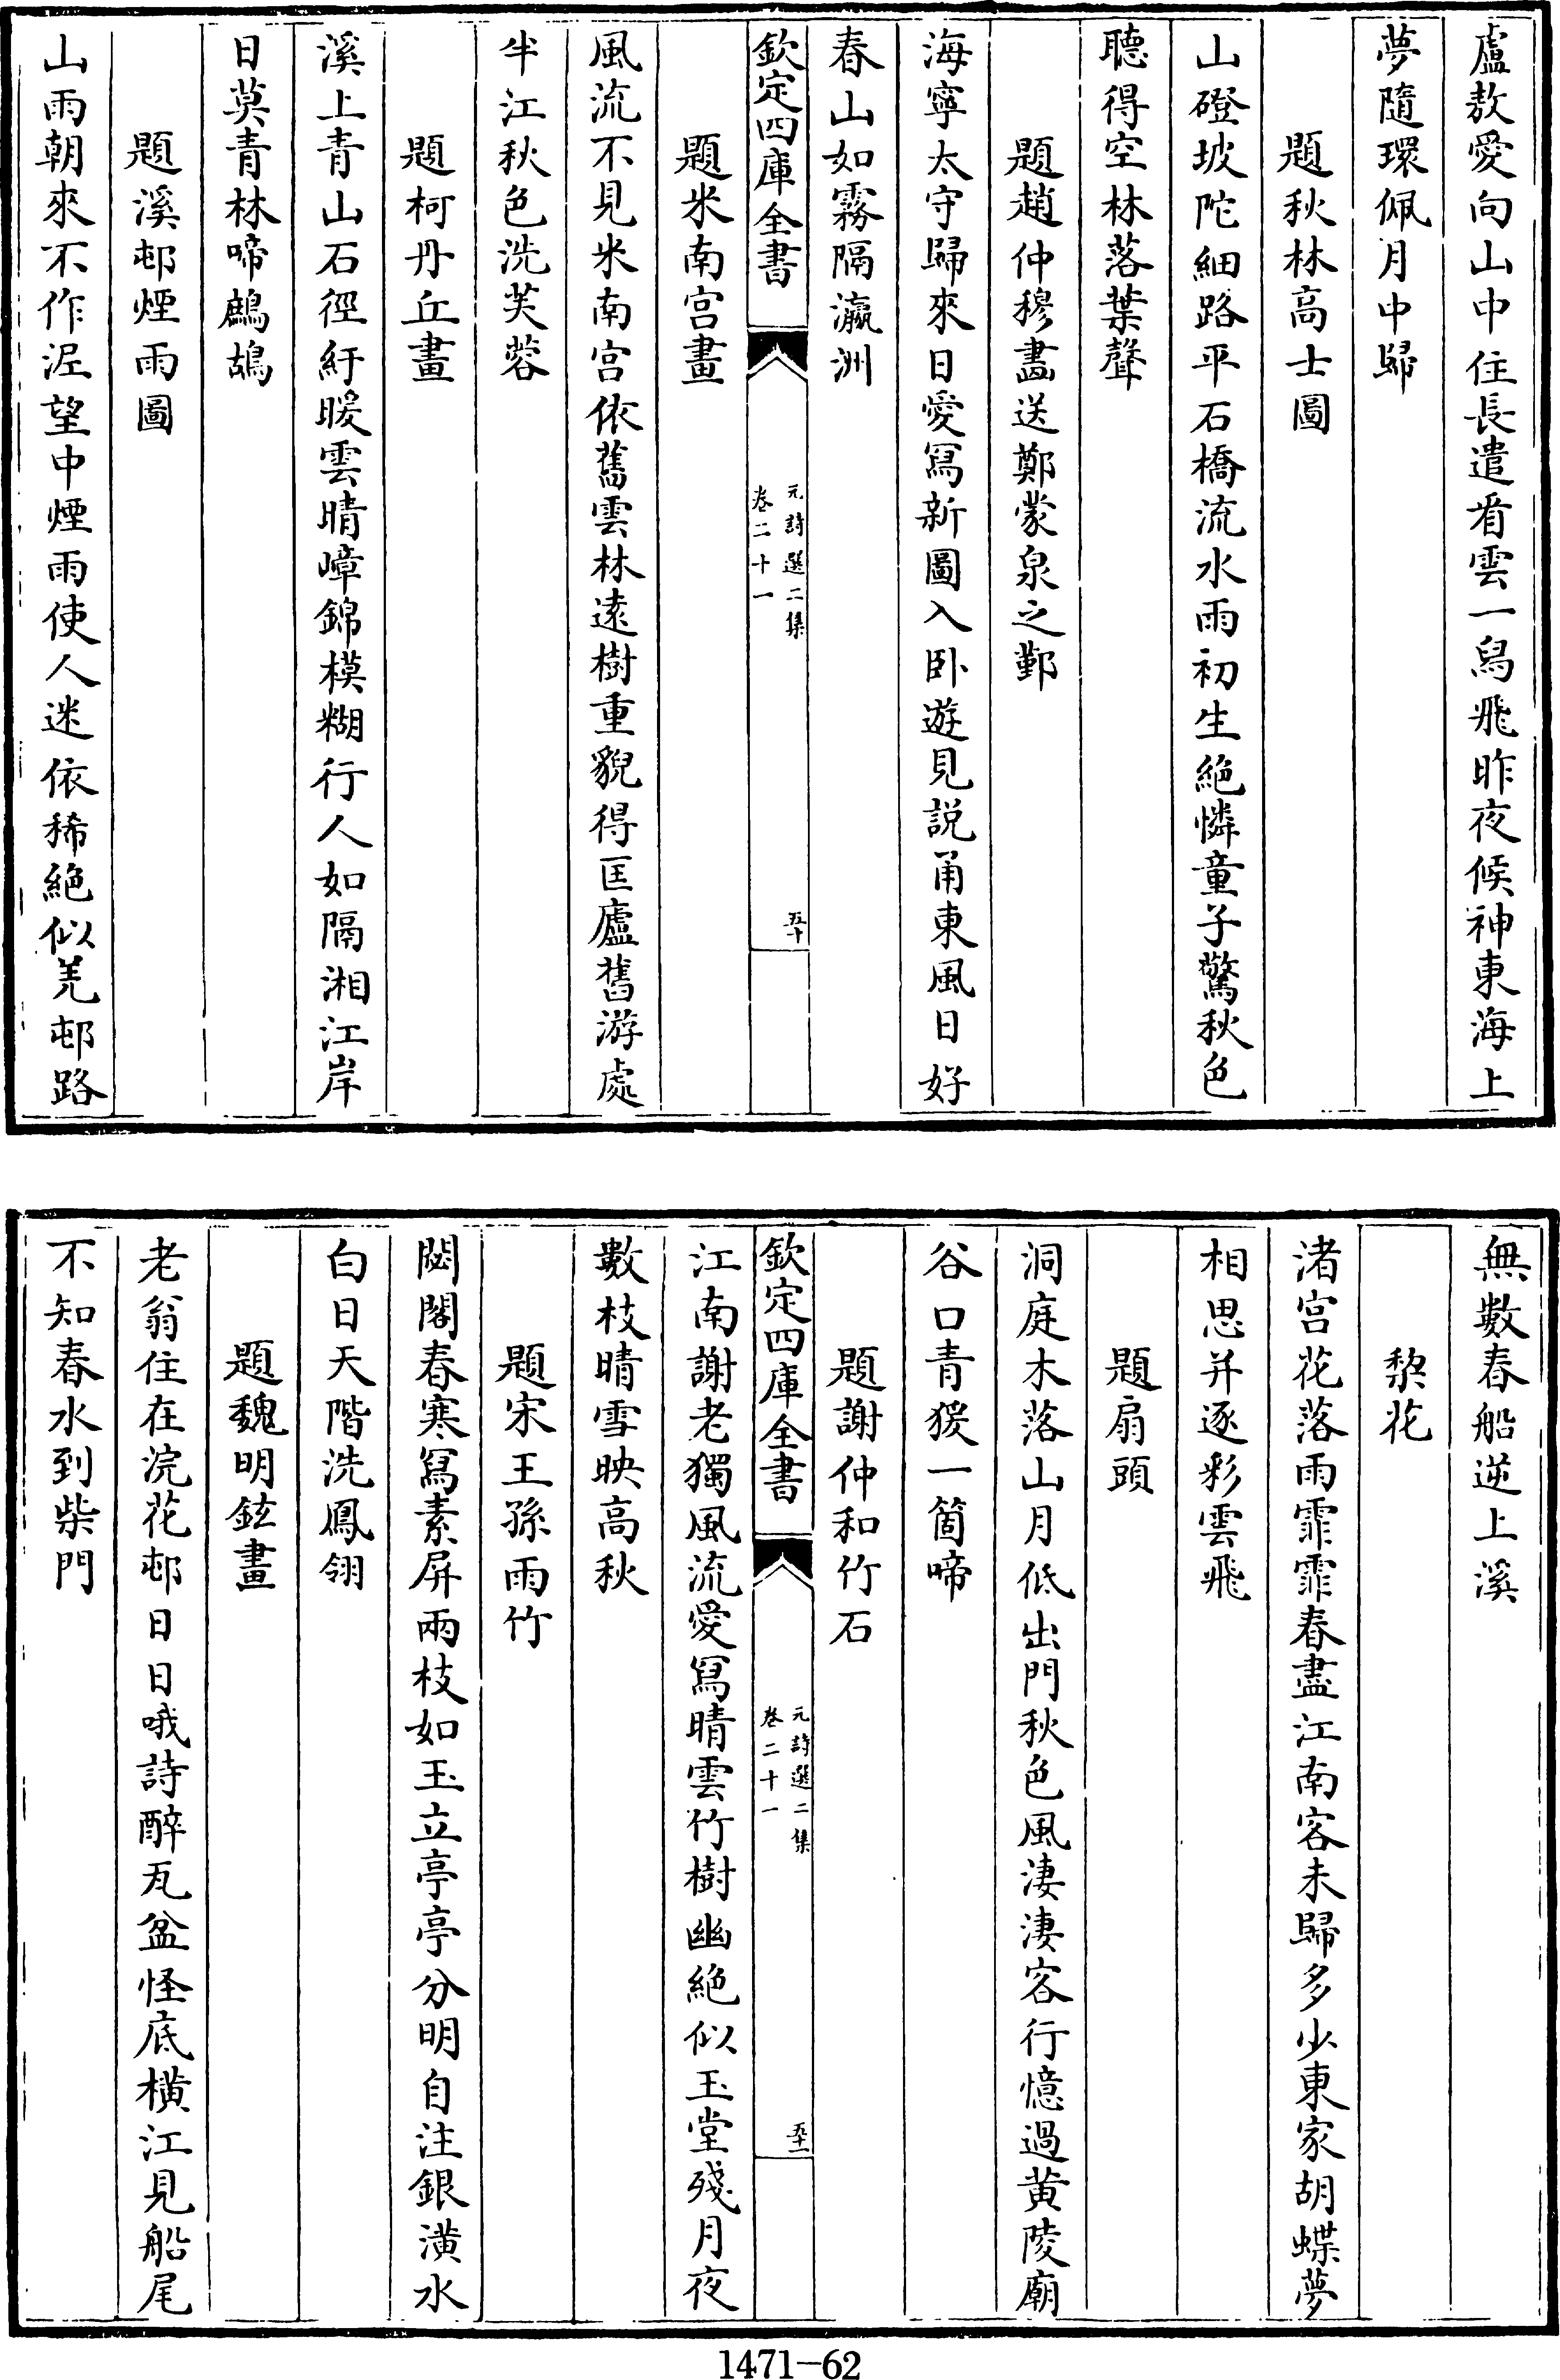 盧敖愛向山中住長遣看雲一舄飛昨夜候神東海上
夢隨環佩月中歸
題秋林高士圖
山磴坡陀細路平石橋流水雨初生絶憐童子驚秋色
聽得空林落葉聲
題趙仲穆畫送鄭蒙泉之鄞
海寧太守歸來日愛寫新圖入卧遊見説甬東風日好
春山如霧隔瀛洲
欽定四庫全書
元詩選二集
卷二十一
五十
題米南宫畫
風流不見米南宫依舊雲林遠樹重貌得匡廬舊游處
半江秋色洗芙蓉
題柯丹丘畫
溪上青山石徑紆暖雲晴嶂錦模糊行人如隔湘江岸
日莫青林啼鷓鴣
題溪邨煙雨圖
山雨朝來不作泥望中煙雨使人迷依稀絶似羌邨路
無數春船逆上溪
棃花
渚宫花落雨霏霏春盡江南客未歸多少東家胡蝶夢
相思并逐彩雲飛
題扇頭
洞庭木落山月低出門秋色風淒淒客行憶過黄陵廟
谷口青猨一箇啼
題謝仲和竹石
欽定四庫全書
元詩選二集
卷二十一
五十一
江南謝老獨風流愛寫晴雲竹樹幽絶似玉堂殘月夜
數枝晴雪映高秋
題宋王孫雨竹
閟閣春寒寫素屏兩枝如玉立亭亭分明自注銀潢水
白日天階洗鳳翎
題魏明鉉畫
老翁住在浣花邨日日哦詩醉瓦盆怪底横江見船尾
不知春水到柴門
1471-62